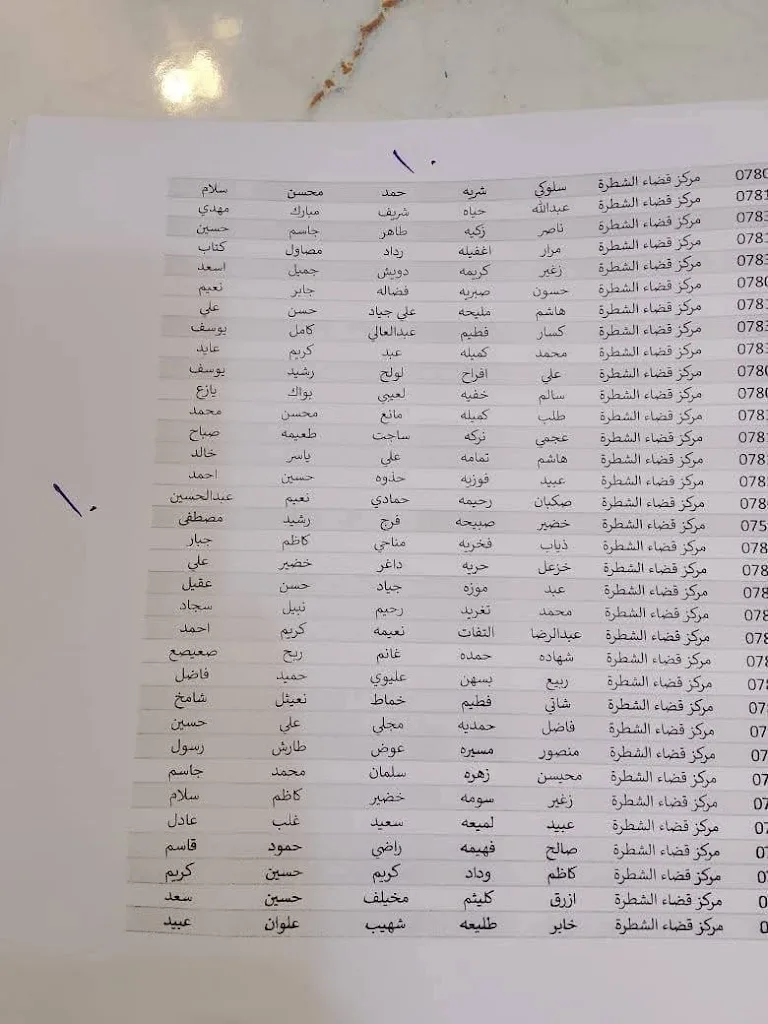 ١٠
0780 مركز قضاء الشطرة سلوكي شريه حمد محسن سلام
0781 مركز قضاء الشطرة عبدالله حياه شريف مبارك مهدي
0783 مركز قضاء الشطرة ناصر زكيه طاهر جاسم حسين
0781 مركز قضاء الشطرة مرار اغفيله رداد مصاول كتاب
0783 مركز قضاء الشطرة زغير كريمه دويش جميل اسعد
0780 مركز قضاء الشطرة حسون صبريه فضاله جابر نعيم
0781 مركز قضاء الشطرة هاشم مليحه علي جياد حسن علي
0783 مركز قضاء الشطرة كسار فطيم عبدالعالي كامل يوسف
0783 مركز قضاء الشطرة محمد كميله عبد كريم عايد
0780 مركز قضاء الشطرة علي افراح لولح رشيد يوسف
0780 مركز قضاء الشطرة سالم خفيه لعيبي بواك يازع
078 مركز قضاء الشطرة طلب كميله مانع محسن محمد
078 مركز قضاء الشطرة عجمي تركه ساجت طعيمه صباح
078 مركز قضاء الشطرة هاشم تمامه علي ياسر خالد
078 مركز قضاء الشطرة عبيد فوزيه حذوه حسين احمد
078 مركز قضاء الشطرة صكبان رحيمه حمادي نعيم عبدالحسين
075 مركز قضاء الشطرة خضير صبيحه فرج رشيد مصطفى
078 مركز قضاء الشطرة ذياب فخريه مناحي كاظم جبار
078 مركز قضاء الشطرة خزعل حربه داغر خضير علي
078 مركز قضاء الشطرة عبد موزه جياد حسن عقيل
078 مركز قضاء الشطرة محمد تغريد رحيم نبيل سجاد
078 مركز قضاء الشطرة عبدالرضا التفات نعيمه كريم احمد
078 مركز قضاء الشطرة شهاده حمده غانم ريح صعيصع
078 مركز قضاء الشطرة ربيع بسهن عليوي حميد فاضل
07 مركز قضاء الشطرة شاتي فطيم خماط نعيثل شامخ
07 مركز قضاء الشطرة فاضل حمديه مجلي علي حسين
07 مركز قضاء الشطرة منصور مسيره عوض طارش رسول
07 مركز قضاء الشطرة محيسن زهره سلمان محمد جاسم
07 مركز قضاء الشطرة زغير سومه خضير كاظم سلام
07 مركز قضاء الشطرة عبيد لميعه سعيد غلب عادل
07 مركز قضاء الشطرة صالح فهيمه راضي حمود قاسم
07 مركز قضاء الشطرة كاظم وداد كريم حسين كريم
0 مركز قضاء الشطرة ازرق كليثم مخيلف حسين سعد
0 مركز قضاء الشطرة خابر طليعه شهيب علوان عبيد
١٠